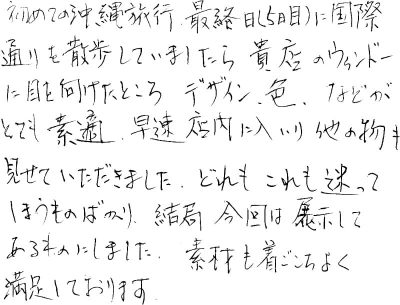 初めての沖縄旅行．最終日(5日目)に国際
通りを散歩していましたら 貴店のウィンドー
に目を向けたところ デザイン、色、などが
とても素適．早速店内に入いり他の物も
見せていただきました．どれもこれも迷って
しまうものばかり．結局 今回は展示して
あるものにしました．素材も着ごこちよく
満足しております．